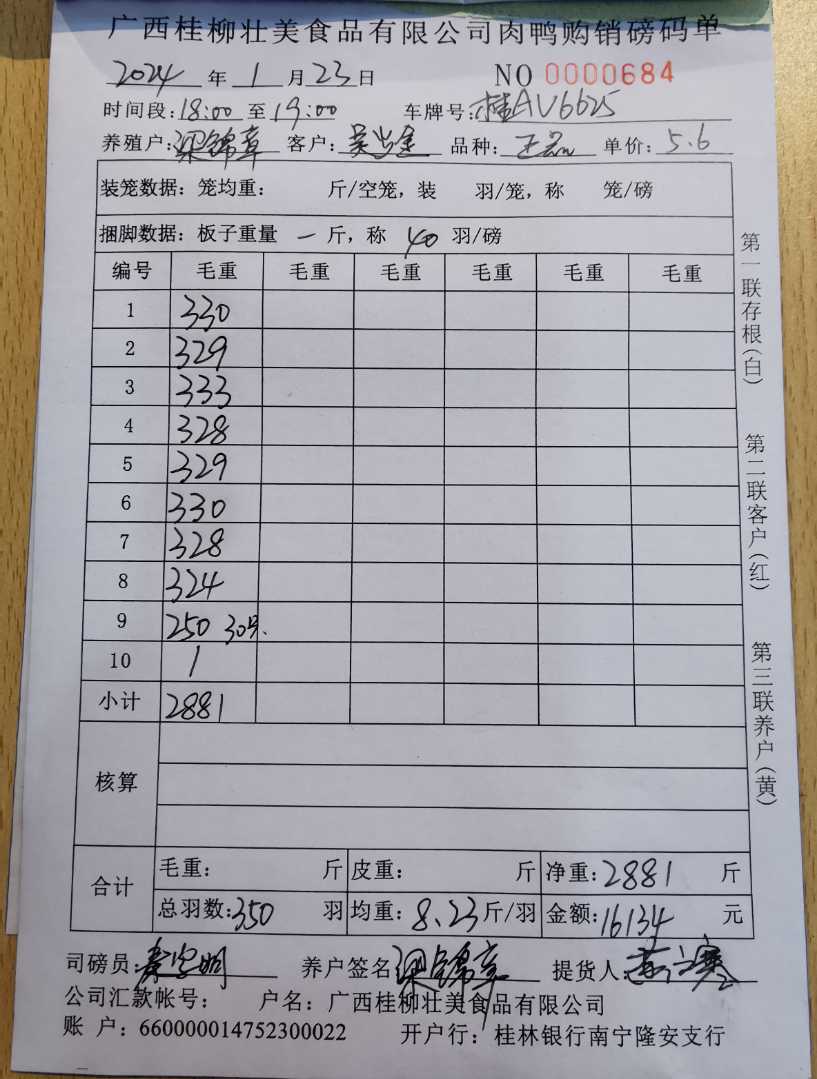 广西桂柳壮美食品有限公司肉鸭购销磅码单
2024 年 1 月 23 日 NO 0000684
时间段: 18:00 至 19:00 车牌号: 桂AV6625
养殖户: 梁锦章 客户: 品种: 单价: 5.6
装笼数据: 笼均重: 斤/空笼, 装 羽/笼, 称 笼/磅
捆脚数据: 板子重量 一 斤, 称 40 羽/磅
编号 毛重 毛重 毛重 毛重 毛重 毛重
1 330
2 329
3 333
4 328
5 329
6 330
7 328
8 324
9 250 30只.
10 1
小计 2881
核算
合计 毛重: 斤 皮重: 斤 净重: 2881 斤
总羽数: 350 羽 均重: 8.23 斤/羽 金额: 16134 元
司磅员 养户签名 梁锦章 提货人
公司汇款帐号: 户名: 广西桂柳壮美食品有限公司
账 户: 660000014752300022 开户行: 桂林银行南宁隆安支行
第一联存根(白)
第二联客户(红)
第三联养户(黄)